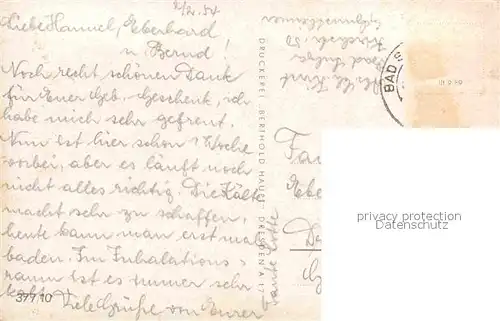 2/2. 54
Liebe Hannel, Eberhard
u. Bernd!
Noch recht schönen Dank
für Euer Geb. Geschenk, ich
habe mich sehr gefreut.
Nun ist hier schon 1 Woche
vorbei, aber es läuft noch
nicht alles richtig. Die Kälte
macht sehr zu schaffen,
heute kann man erst mal
baden. Im Inhalations =
raum ist es immer sehr
kalt. Viele Grüße von Eurer
Tante Lotte
377 10
DRUCKEREI BERTHOLD HAUSE DRESDEN A 17
BAD
Fa
Ebe
privacy protection
Datenschutz